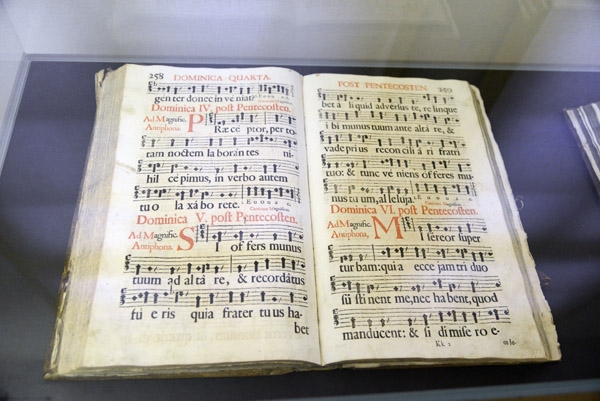 258 DOMINICA QUARTA.
gen ter donec in ve niat.
Dominica IV. post Pentecosten.
Ad Magnific.
Antiphona.
PRæ cep tor, per to
tam noctem la boran tes ni-
hil ce pimus, in verbo autem
tu o la xá bo rete. E u o u a e
Dominica V. post Pentecosten.
Ad Magnific.
Antiphona.
SI of fers munus
tuum ad al tá re, & recordátus
fu e ris quia frater tu us ha-
bet
POST PENTECOSTEN. 259
bet á liquid adversùs te, re linque
i bi munus tuum ante altá re, &
vade prius recon cili á ri fratri
tuo: & tunc vé niens of feres mu-
nus tu um, al leluja.
Dominica VI. post Pentecosten.
Ad Magnific.
Antiphona.
MI sereor super
tur bam: qui a ecce jam tri duo
su sti nent me, nec ha bent, quod
manducent: & si di mise ro e-
Kk 2